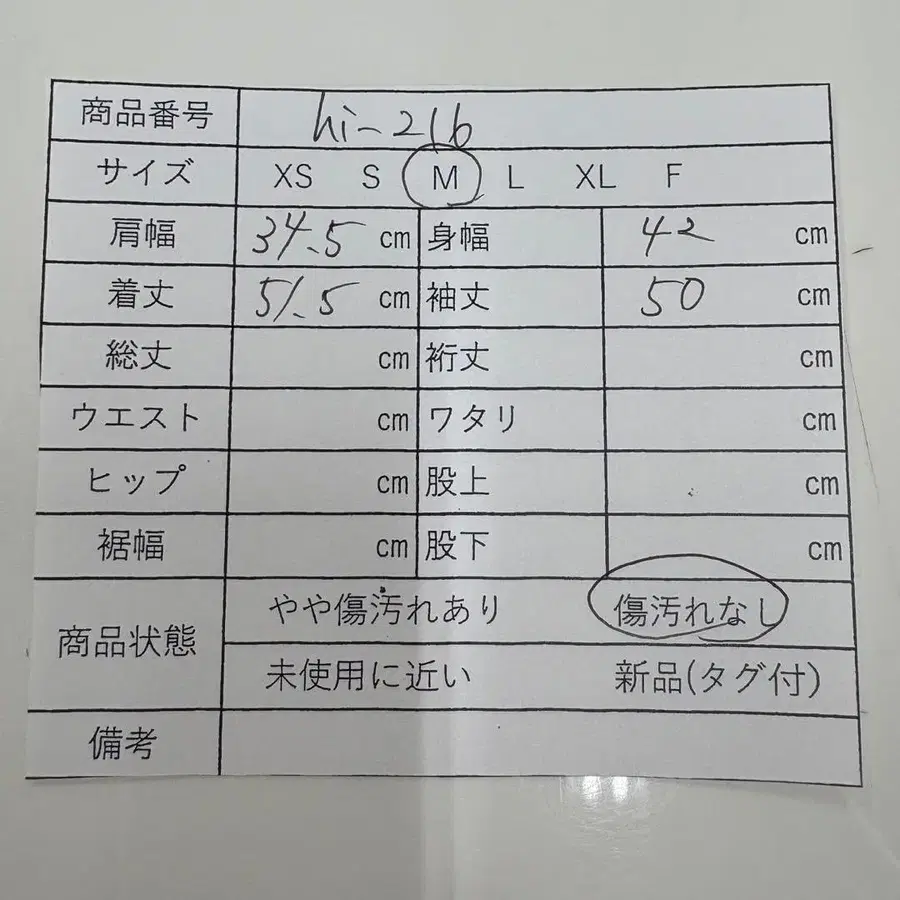 商品番号 hi-216
サイズ XS S M L XL F
肩幅 34.5 cm 身幅 42 cm
着丈 51.5 cm 袖丈 50 cm
総丈 cm 裄丈 cm
ウエスト cm ワタリ cm
ヒップ cm 股上 cm
裾幅 cm 股下 cm
商品状態 やや傷汚れあり 傷汚れなし
未使用に近い 新品(タグ付)
備考